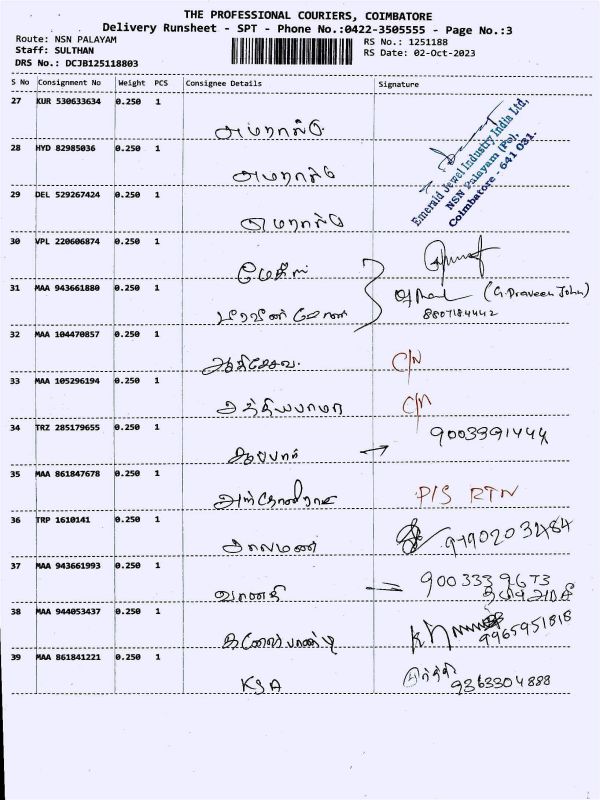 THE PROFESSIONAL COURIERS, COIMBATORE
Delivery Runsheet - SPT - Phone No.:0422-3505555 - Page No.:3
Route: NSN PALAYAM
RS No.: 1251188
Staff: SULTHAN
RS Date: 02-Oct-2023
DRS No.: DCJB125118803
S No Consignment No Weight PCS Consignee Details Signature
27 KUR 530633634 0.250 1
அமரால்டு
28 HYD 82985036 0.250 1
அமரால்டு
Emerald Jewel Industry India Ltd,
NSN Palayam (Po),
Coimbatore - 641 031.
29 DEL 529267424 0.250 1
அமரால்டு
30 VPL 220606874 0.250 1
31 MAA 943661880 0.250 1
(G. Praveen John)
8807184442
32 MAA 104470857 0.250 1
C/N
33 MAA 105296194 0.250 1
சத்தியபாமா
C/N
34 TRZ 285179655 0.250 1
9003391444
35 MAA 861847678 0.250 1
P/S RTN
36 TRP 1610141 0.250 1
சாலமன்
37 MAA 943661993 0.250 1
வாணதி
900333 9673
38 MAA 944053437 0.250 1
9965951818
39 MAA 861841221 0.250 1
KSA
9363304888